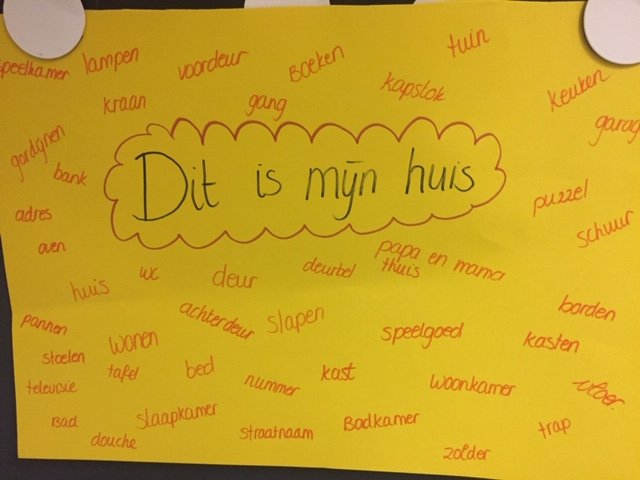 speelkamer
lampen
voordeur
Boeken
tuin
kraan
gang
kapstok
keuken
garag
gordijnen
bank
Dit is mijn huis
puzzel
adres
schuur
oven
huis
wc
deur
deurbel
papa en mama
thuis
borden
pannen
wonen
achterdeur
slapen
speelgoed
kasten
stoelen
tafel
bed
nummer
kast
woonkamer
vloer
televisie
Bad
slaapkamer
straatnaam
Badkamer
trap
douche
zolder